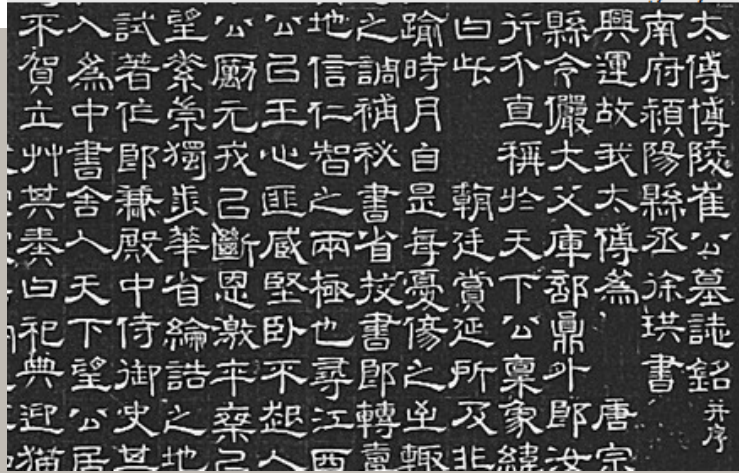 太傅博陵崔公墓誌銘并序
南府頴陽縣丞徐珙書
興運故我太傅為 唐宗
縣令儼大父庫部員外郎汝
行不直稱於天下公稟象緯
曰 朝廷賞延所及非
踰時月自是每憂傷之至輒
之調補秘書省挍書郎轉壽
地信仁智之兩極也尋江西
公己王心匪感堅卧不起人
公勵元戎己斷恩激卒乘己
望崇獨步華省綸誥之地
試著作郎兼殿中侍御史其
入為中書舍人天下望公居
不賀立艸其奏曰祀典迎猫